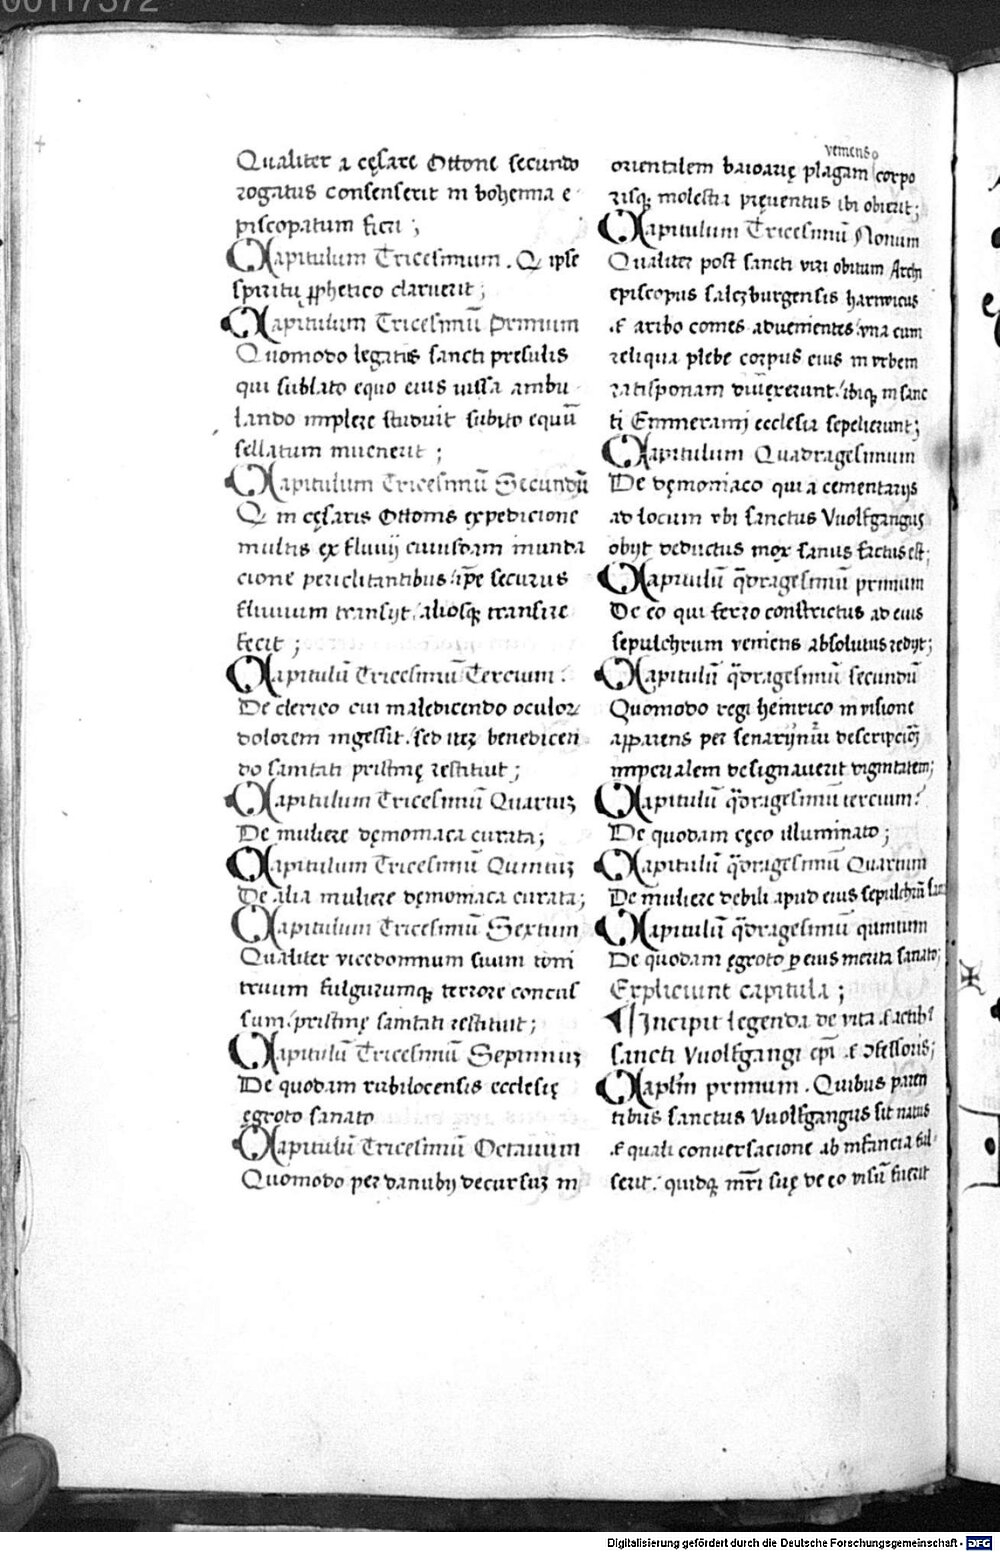 00117372
Qualiter a cęsare Ottone secundo
rogatus consenserit in bohemia e
piscopatum fieri ;
Capitulum Tricesimum . Q ipse
spiritu ꝓphetico claruerit ;
Capitulum Tricesimū Primum
Quomodo legatis sancti presulis
qui sublato equo eius iussa ambu
lando implere studuit subito equū
sellatum inuenerit ;
Capitulum Tricesimū Secundū
Q in cęsaris Ottonis expedicione
multis ex fluuij cuiusdam inunda
cione periclitantibus ip̄e securus
fluuium transijt aliosqꝫ transire
fecit ;
Capitulū Tricesimū Tercium .
De clerico cui maledicendo oculoꝝ
dolorem ingessit sed iteꝝ benedicen
do sanitati pristinę restituit ;
Capitulum Tricesimū Quartuꝫ
De muliere dęmoniaca curata ;
Capitulum Tricesimū Quintuꝫ
De alia muliere dęmoniaca curata ;
Capitulum Tricesimū Sextum
Qualiter vicedomnum suum toni
truum fulgurumqꝫ terrore concus
sum pristinę sanitati restituit ;
Capitulū Tricesimū Septimuꝫ
De quodam rubilocensis ecclesię
egroto sanato
Capitulū Tricesimū Octauum
Quomodo per danubij decursuꝫ in
veniens
orientalem baioarię plagam corpo
risqꝫ molestia pręuentus ibi obierit ;
Capitulum Tricesimū Nonum
Qualiter post sancti viri obitum Archi
episcopus salczburgensis harnvicus
⁊ aribo comes aduenientes vna cum
reliqua plebe corpus eius in vrbem
ratisponam divexerunt ibiqꝫ in sanc
ti Emmerami ecclesia sepelierunt ;
Capitulum Quadragesimum
De dęmoniaco qui a cementarijs
ad locum vbi sanctus Vuolfgangus
obijt deductus mox sanus factus est ;
Capitulū q̄dragesimū primum
De eo qui ferro constrictus ad eius
sepulchrum veniens absolutus redijt ;
Capitulū q̄dragesimū secundū
Quomodo regi heinrico in visione
apparens per senarij descripcioꝫ
imperialem designauerit dignitatem ;
Capitulū q̄dragesimū tercium .
De quodam cęco illuminato ;
Capitulū q̄dragesimū Quartum
De muliere debili apud eius sepulchrū
Capitulū q̄dragesimū quintum
De quodam ęgroto ꝑ eius merita sanato ;
Expliciunt capitula ;
¶ Incipit legenda de vita ⁊ actibꝰ
sancti Vuolfgangi ep̄i ⁊ ꝯfessoris ;
Caplm̄ primum . Quibus paren
tibus sanctus Vuolfgangus sit natus
⁊ quali conuersacione ab infancia ful
serit . quidqꝫ mr̄i suę de eo visū fuerit
Digitalisierung gefördert durch die Deutsche Forschungsgemeinschaft - DFG